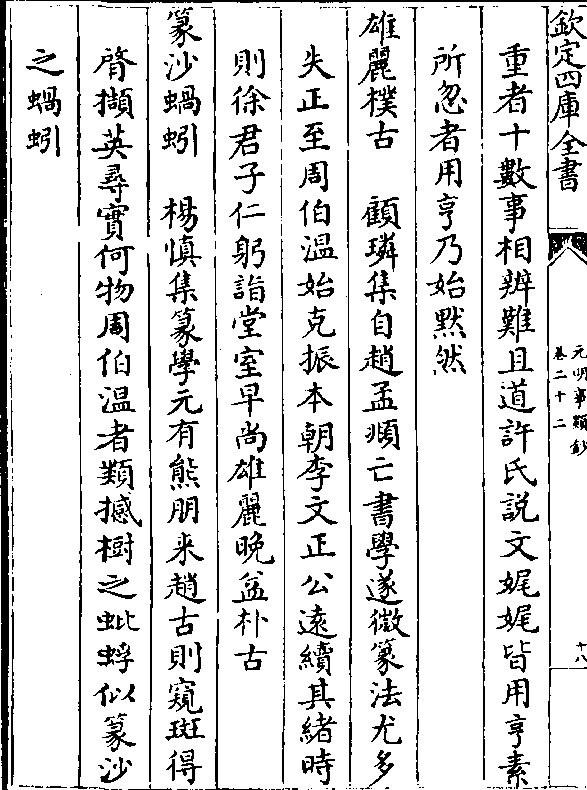 欽定四庫全書
元明事類鈔
卷二十二
十八
重者十數事相辨難且道許氏説文娓娓皆用亨素
所忽者用亨乃始默然
雄麗樸古　顧璘集自趙孟頫亡書學遂微篆法尤多
失正至周伯温始克振本朝李文正公遠續其緒時
則徐君子仁躬詣堂室早尚雄麗晚益朴古
篆沙蝸蚓　楊慎集篆學元有熊朋来趙古則窺斑得
膋擷英尋實何物周伯温者類撼樹之蚍蜉似篆沙
之蝸蚓